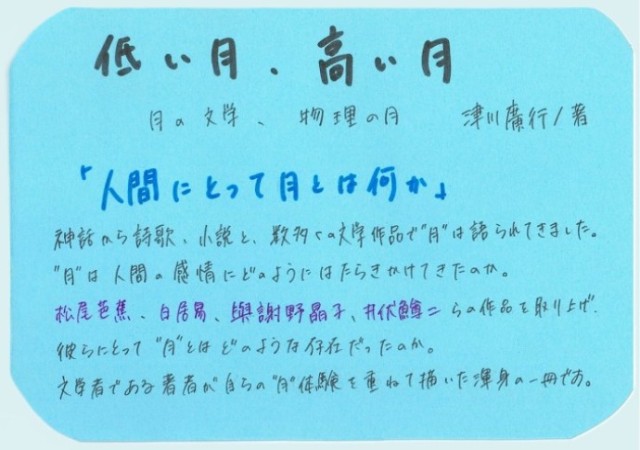 低い月、高い月
月の文学、物理の月 津川廣行/著
「人間にとって月とは何か」
神話から詩歌、小説と、数多くの文学作品で"月"は語られてきました。
"月"は人間の感情にどのようにはたらきかけてきたのか。
松尾芭蕉、白居易、與謝野晶子、井伏鱒二らの作品を取り上げ、
彼らにとって"月"とはどのような存在だったのか。
文学者である著者が自らの"月"体験を重ねて描いた渾身の一冊です。